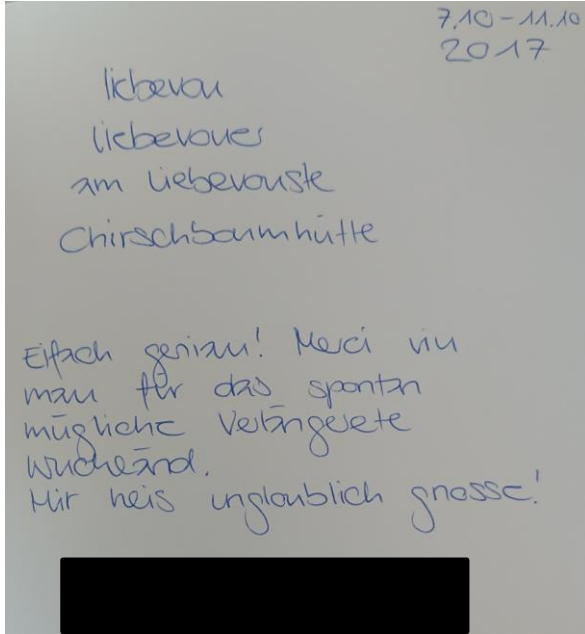 7.10 - 11.10
2017
liebevou
liebevouer
am liebevouste
Chirschboumhütte
Eifach geniau! Merci viu
mau für das spontan
mügliche verlängerete
wucheänd.
Mir heis ungloublich gnosse!